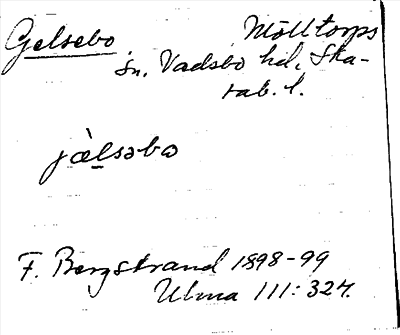 Gelsebo Mölltorps
sn. Vadsbo hd, Ska-
rab. l.
jæ̀lsəbo
F. Bergstrand 1898-99
Ulma 111:324.